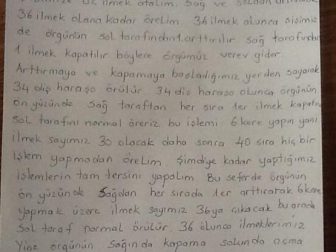 ilmek atalım. Sağ ve soldan
36 ilmek olana kadar örelim. 36 ilmek olunca şişimiz
de örgünün sol tarafından 1 arttırılır sağ tarafından
1 ilmek kapatılır böylece örgümüz verev gider.
Arttırmaya ve kapamaya başladığımız yerden sayarak
34 diş haraşo örülür 34 diş haraşo olunca örgünün
ön yüzünde sağ taraftan her sıra 1er ilmek
sol tarafı normal öreriz bu işlemi 6 kere yapın yani
ilmek sayımız 30 olacak daha sonra 40 sıra hiç bir
işlem yapmadan örelim. Şimdiye kadar yaptığımız
işlemlerin tam tersini yapalım Bu seferde örgünün
ön yüzünde sağdan her sırada 1er arttırarak 6 kere
yapmak üzere ilmek sayımız 36ya çıkacak bu arada
sol taraf normal örülür. 36 olunca ilmeklerimiz
Yine örgünün sağında kapama solunda açma